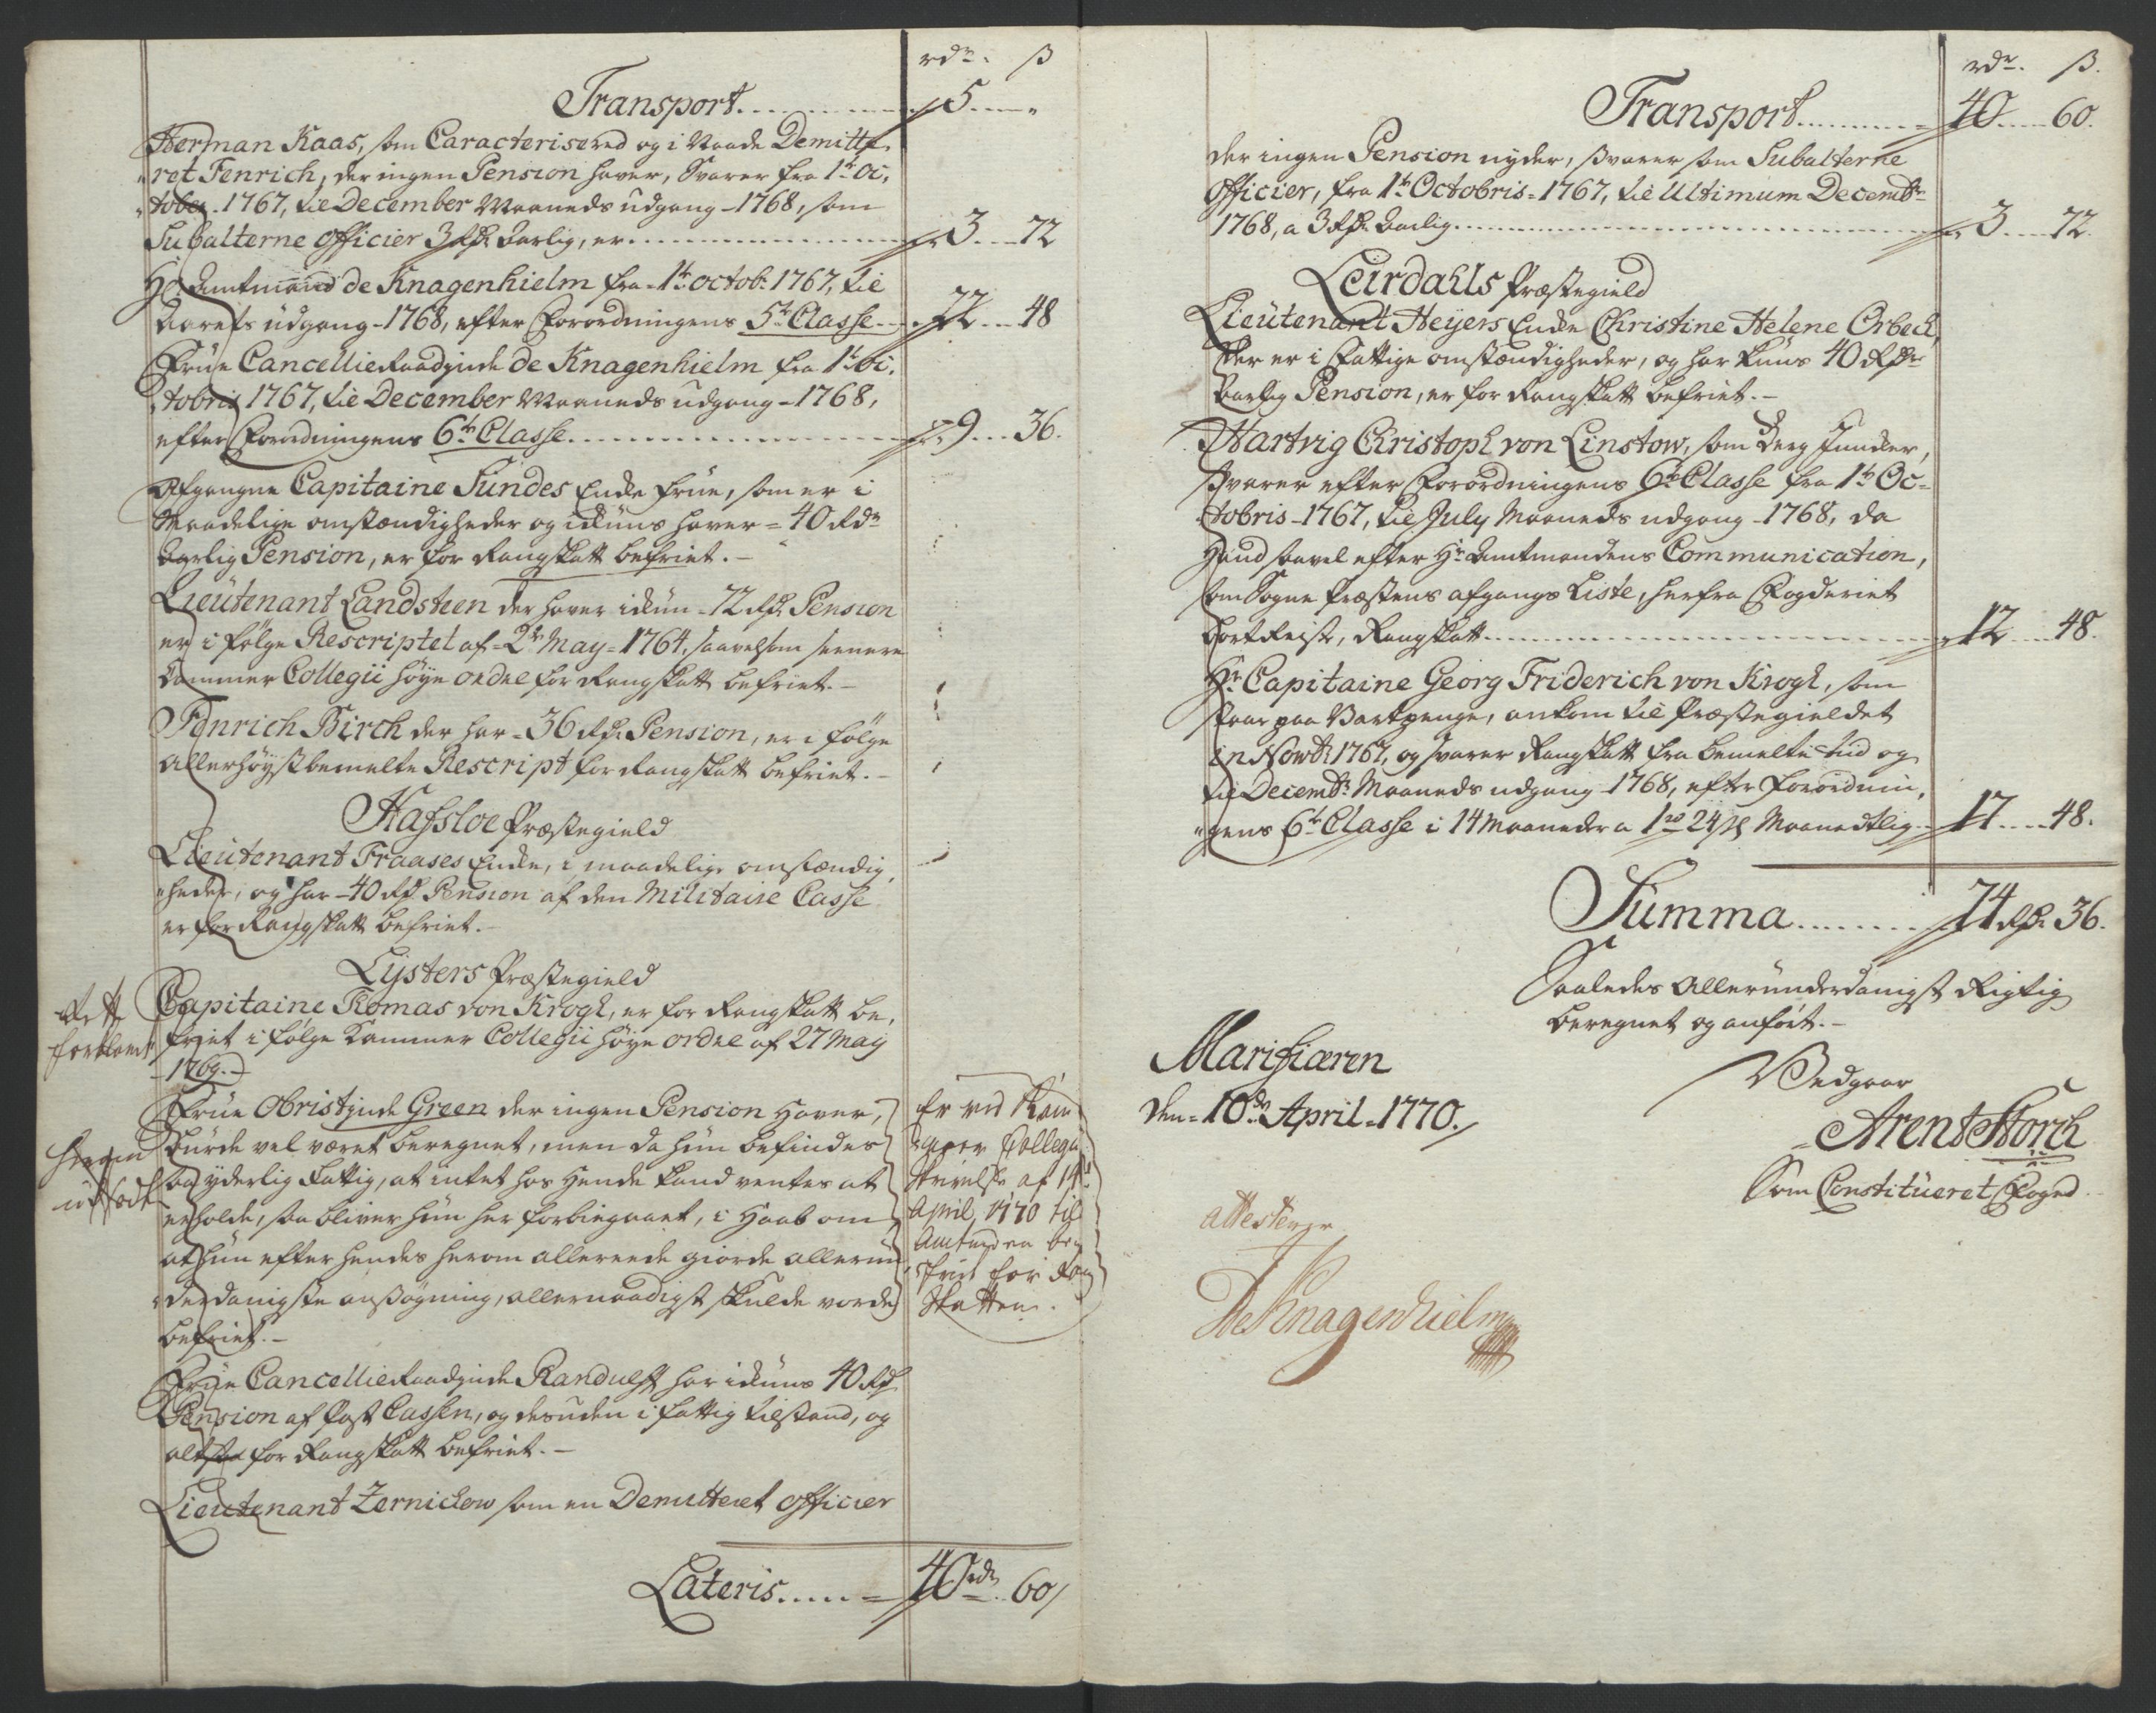 rdr. ß
Transport............ 5 .... "
Herman Kaas, som Caracterisered og i Naade Demitte,
"ret Fenrich, der ingen Pension haver, Svarer fra 1te Oc,
"tober 1767, til December Maaneds udgang 1768, som
Subalterne Officier 3 Rdr Aarlig, er ........ 3 .... 72
Hr Amtmand de Knagenhielm fra 1te octob: 1767, til
Aarets udgang 1768, efter Forordningens 5te Classe ... 22 ... 48
Früe CancellieRaadinde de Knagenhielm fra 1te Oc,
tobris 1767, til December Maaneds udgang 1768,
efter Forordningens 6te Classe ........ 9 ... 36.
Afgangne Capitaine Sundes Enke Früe, som er i
Maadelige omstændigheder og ickuns haver 40 Rdr
Aarlig Pension, er for Rangskatt befriet. –
Lieutenant Landsteen der haver ickun 72 Rdr Pension
er i følge Rescriptet af 2den May 1764, saavelsom seenere
Cammer Collegii høye ordre for Rangskatt befriet. –
Fenrich Birch der har 36 Rdr Pension, er i følge
Allerhøystbemelte Rescript for Rangskatt befriet. –
Hafsloe Præstegield
Lieutenant Fraases Enke, i maadelige omstændig,
"heder, og har 40 Rdr Pension af den Militaire Casse
er for Rangskatt befriet.
Lysters Præstegield
Capitaine Thomas von Krogh, er for Rangskatt be,
friet i følge Kammer Collegii høye ordre af 27 May
1769. –
Rett
forklaret
Früe Obristinde Green der ingen Pension Haver,
burde vel været beregnet, men da hun befindes
saa yderlig Fattig, at intet hos Hende kand ventes at
erholde, saa bliver hun her forbiegaaet, i Haab om
at hun efter hendes herom allereede giorde allerun,
"derdanigste ansøgning, allernaadigst skulde vorde
befriet. –
herom
udsadt
Er ved Kam
mer Collegii
skrivelse af 14de
April 1770 til
Amtmanden be
friet for Rang
Skatten.
Frue CancellieRaadinde Randulff har ickuns 40 Rdr
Pension af Post Cassen, og desuden i fattig tilstand, og
altsaa for Rangskatt befriet. –
Lieutenant Zernichow som en Demitteret Officier
Lateris ..... 40 rdr 60
rdr. ß.
Transport ........... 40 .... 60.
der ingen Pension nyder, svarer som Subalterne
Officier, fra 1te Octobris 1767, til Ultimum Decembr
1768, a 3 Rdr Aarlig ........ 3 .... 72.
Leirdahls Præstegield
Lieutenant Heyers Enke Christine Helene Orbech,
der er i Fattige omstændigheder, og har kuns 40 Rdr
Aarlig Pension, er for Rangskatt befriet. –
Hartvig Christoph von Linstow, som Berg Juncker,
svarer efter Forordningens 6te Classe fra 1te Oc-
tobris 1767, til July Maaneds udgang 1768, da
Hand saavel efter Hr Amtmandens Communication,
som Sogne Præstens afgangs Liste, herfra Fogderiet
bortReiste, Rangskatt ........ 12 .... 48.
Hr Capitaine Georg Friderich von Krogh, som
staar paa Vartpenge, ankom til Præstegieldet
in Novbr 1767, og svarer Rangskatt fra bemelte tiid og
til Decembr Maaneds udgang 1768, efter Forordnin,
"gens 6te Classe i 14 Maaneder a 1 rd 24 ß Maanedtlig .. 17 .... 48.
Summa ........ 74 Rdr 36.
Saaledes Allerunderdanigst Rigtig
beregnet og anført. –
Marifiæren
den 10de April 1770.
Vedgaar
Arent Storch
Som Constitueret Foged
attesterer
De Knagenhielm